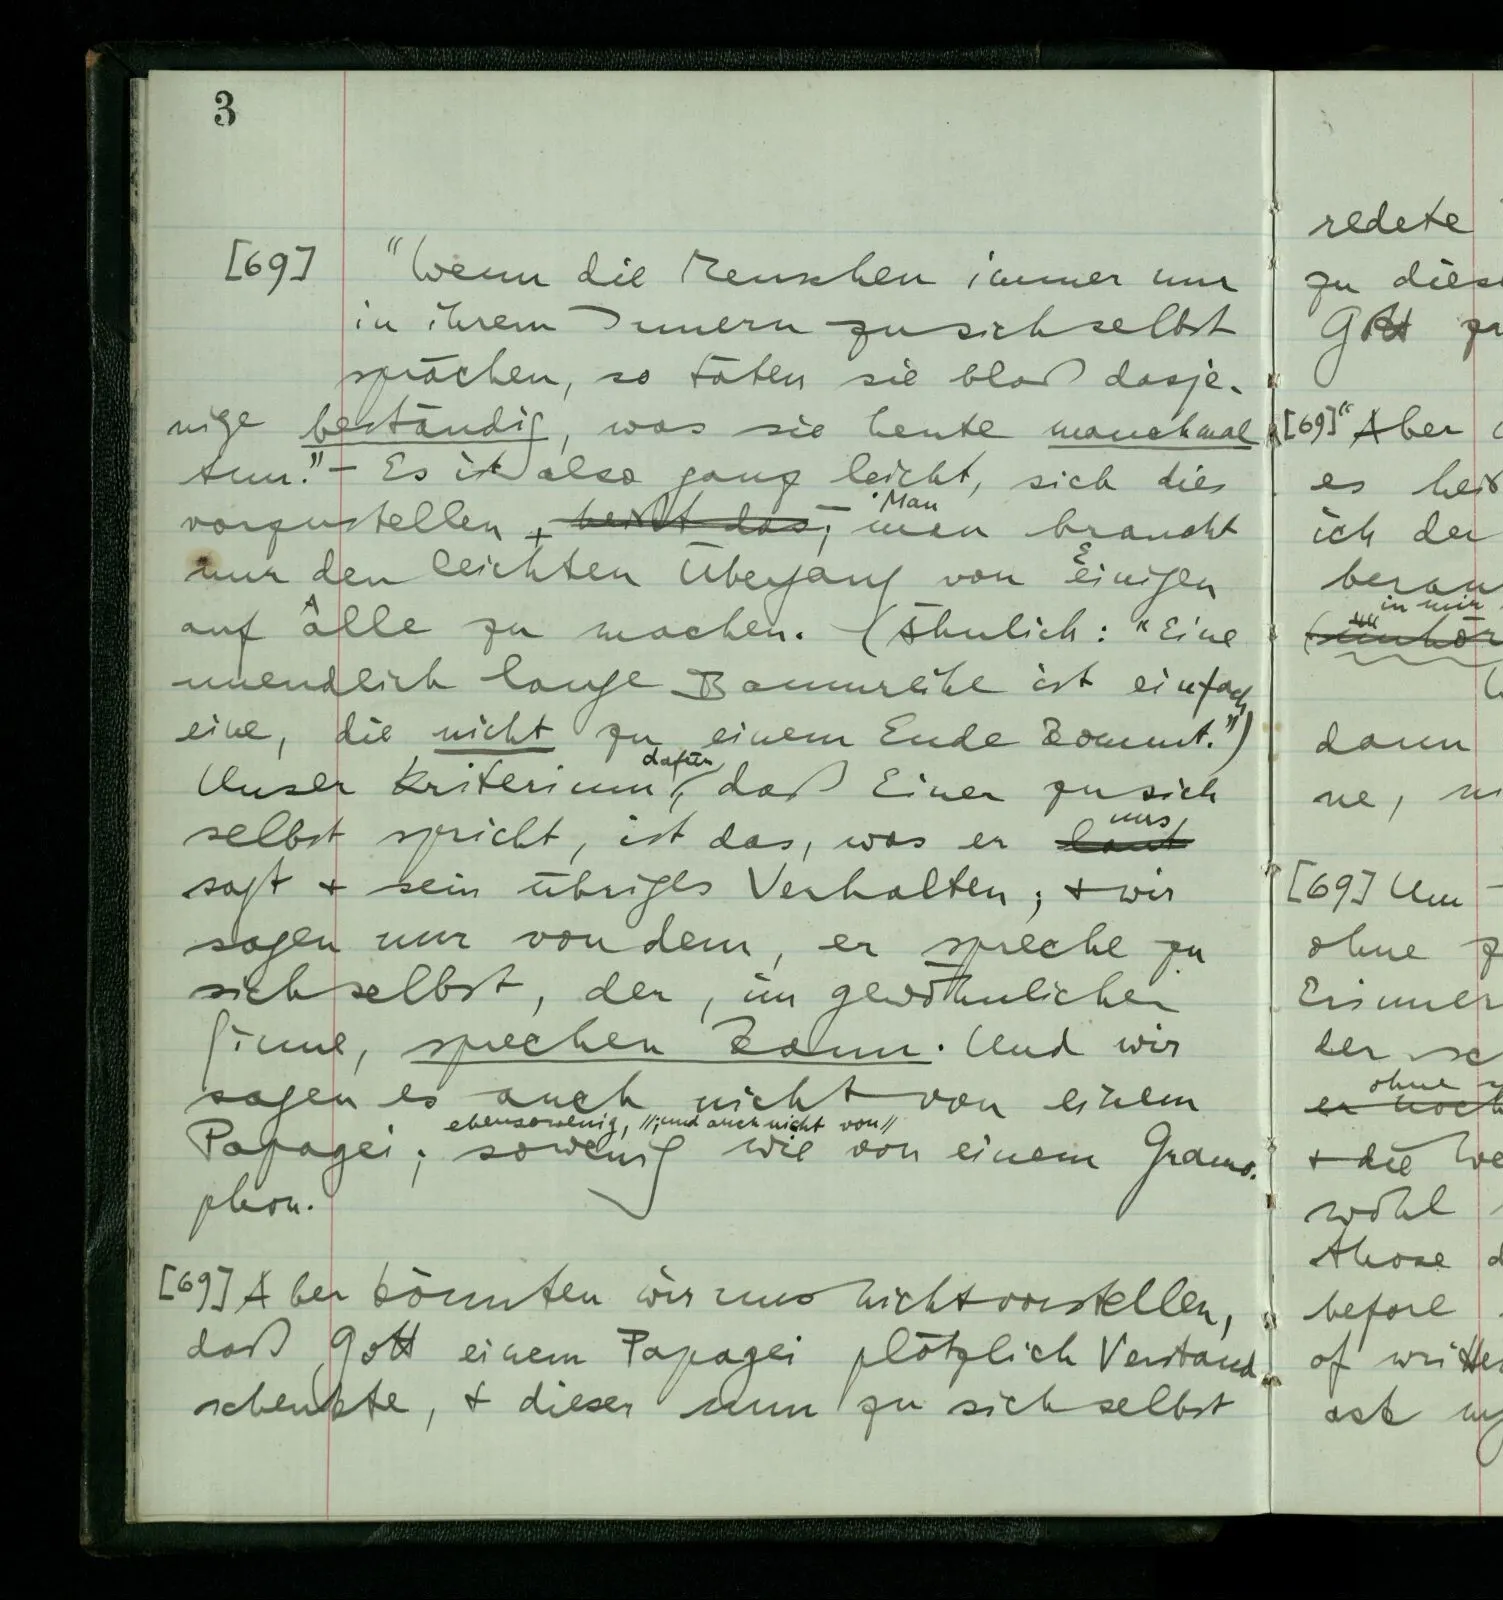 3
[69] "Wenn die Menschen immer nur
in ihrem Innern zu sich selbst
sprächen, so täten sie bloß dasje-
nige beständig, was sie heute manchmal
tun." – Es ist also ganz leicht, sich dies
vorzustellen + heißt das; – Man man braucht
nur den leichten Übergang von Einigen
auf Alle zu machen. (Ähnlich: "Eine
unendlich lange Baumreihe ist einfach
eine, die nicht zu einem Ende kommt.")
Unser Kriterium dafür, daß Einer zu sich
selbst spricht, ist das, was er laut uns
sagt + sein übriges Verhalten; + wir
sagen nur von dem, er spreche zu
sich selbst, der, im gewöhnlichen
Sinne, sprechen kann. Und wir
sagen es auch nicht von einem
ebensowenig, //; und auch nicht von//
Papagei; sowenig wie von einem Gramo-
phon.
[69] Aber könnten wir uns nicht vorstellen,
daß Gott einem Papagei plötzlich Verstand
schenkte, + dieser nun zu sich selbst
redete
zu
Gott
[69] "Aber
es
ich der
in mir
dann
ne,
[69] Um
ohne
der
ohne
er noch
+ die
wohl
those
before
of
ask